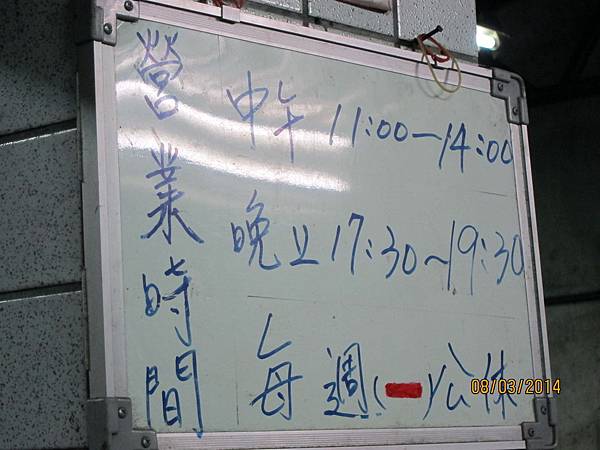 營業時間
中午 11:00—14:00
晚上 17:30~19:30
每週(一)公休
08/03/2014